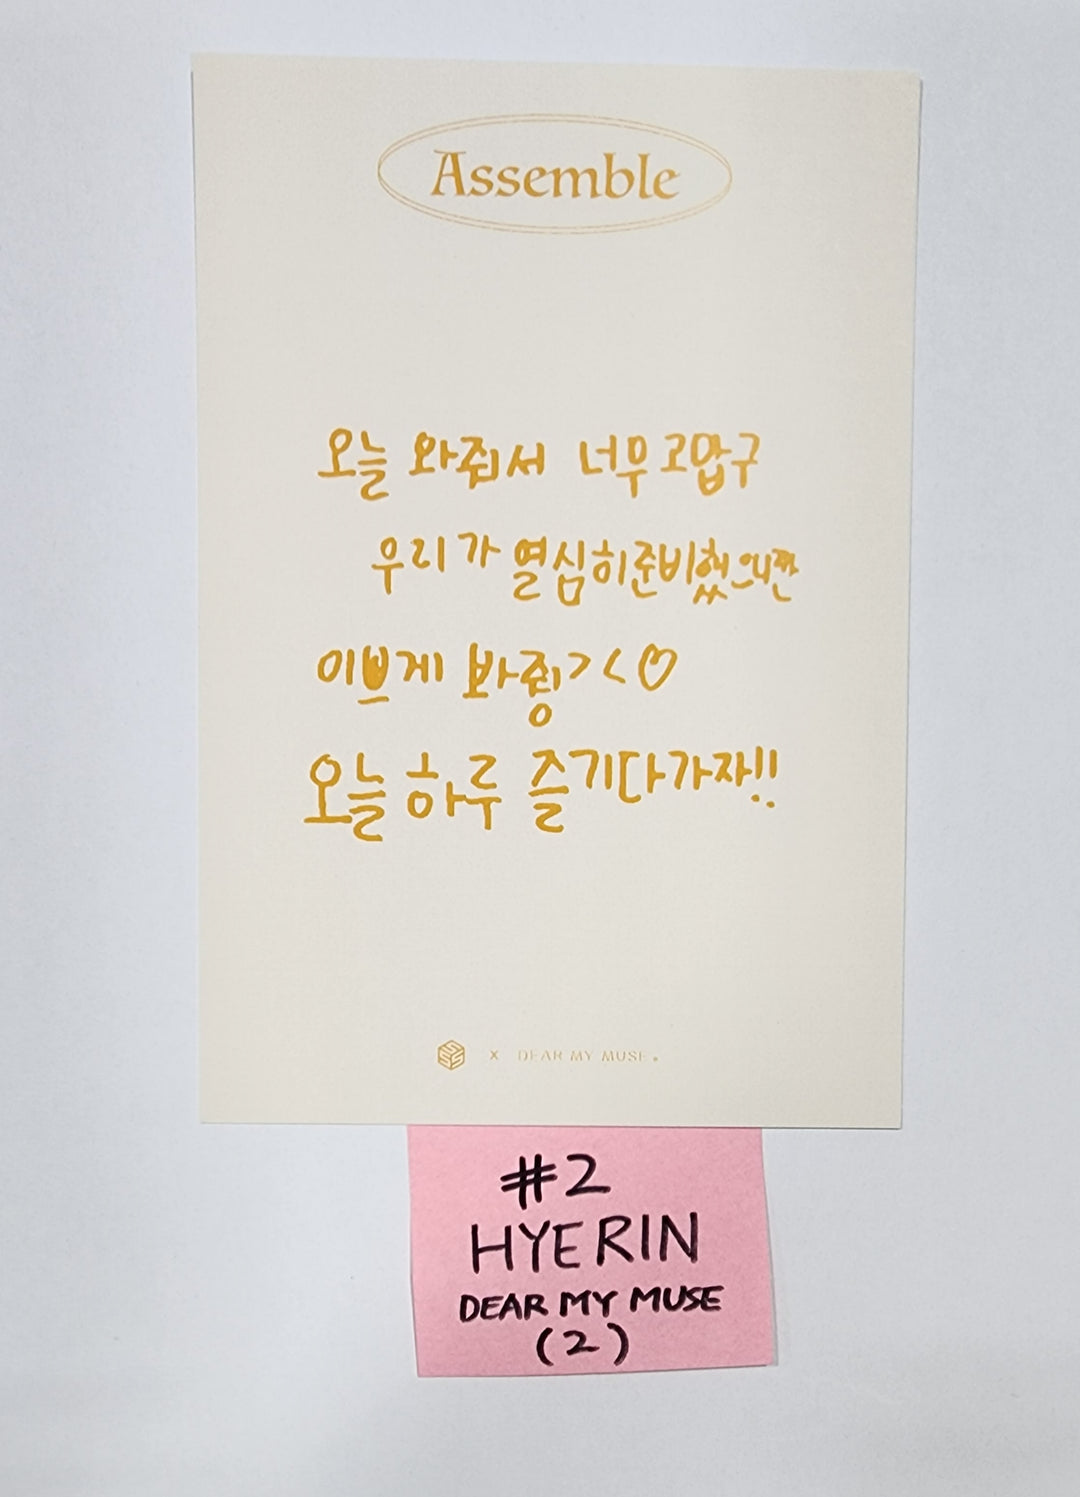 Assemble
오늘 와줘서 너무 고맙구
우리가 열심히 준비했으니깐
이쁘게 봐줭><♡
오늘 하루 즐기다가자!!
x DEAR MY MUSE.
#2
HYERIN
DEAR MY MUSE
(2)